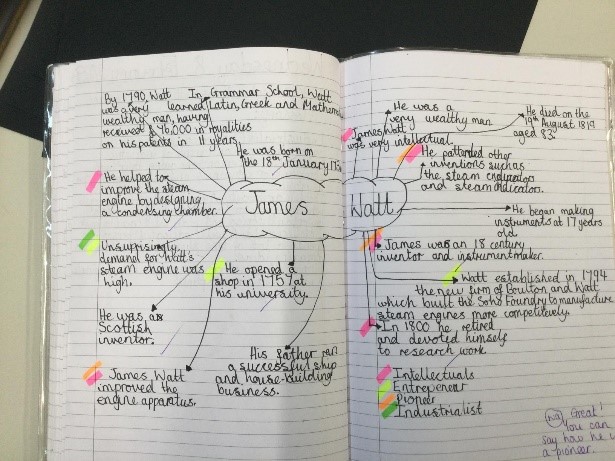 By 1790, Watt
was a very
wealthy man, having
received £76,000 in royalities
on his patents in 11 years.
In Grammar School, Watt
learned Latin, Greek and
He was born on
the 18th January
He helped to
improve the steam
engine by designing
a condensing chamber.
James
Unsuprisingly,
demand for Watt's
steam engine was
high.
He opened a
shop in 1757 at
his university.
He was a
Scottish
inventor.
His father ran
a successful ship
and house-building
business.
James Watt
improved the
engine apparatus.
He was a
very wealthy man
He died on the
19th August 1819
aged 83.
James Watt
was very intellectual.
He patented other
inventions such as
the steam
and steam indicator.
Watt
He began making
instruments at 17 years
old.
James was an 18 century
inventor and instrument maker.
Watt established in 1794
the new firm of Boulton and Watt
which built the Soho Foundry to manufacture
steam engines more competitively.
In 1800 he retired
and devoted himself
to research work.
Intellectuals
Entrepeneur
Pioneer
Industrialist
Great!
You can
say how he
a pioneer.